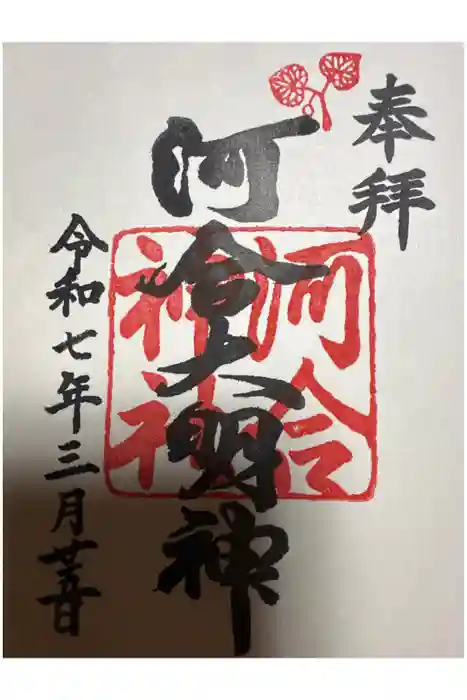 奉拝
河合大明神
令和七年三月
河合
神社